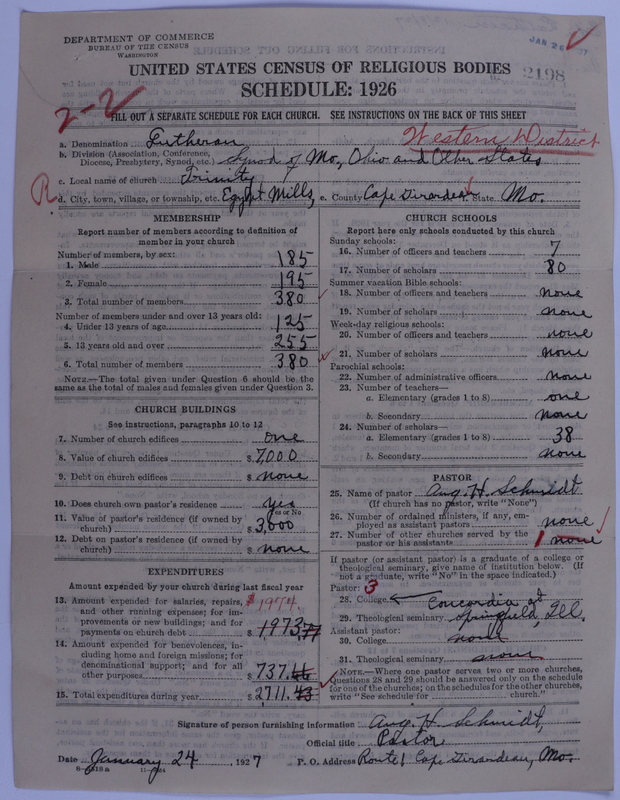 DEPARTMENT OF COMMERCE
BUREAU OF THE CENSUS
WASHINGTON
JAN 26 27
2198
UNITED STATES CENSUS OF RELIGIOUS BODIES
SCHEDULE: 1926
2-2
FILL OUT A SEPARATE SCHEDULE FOR EACH CHURCH. SEE INSTRUCTIONS ON THE BACK OF THIS SHEET
a. Denomination Lutheran
Western District
b. Division (Association, Conference, Diocese, Presbytery, Synod, etc.) Synod of Mo, Ohio and Other States
c. Local name of church Trinity
R
d. City, town, village, or township, etc. Egypt Mills, e. County Cape Girardeau f. State Mo.
MEMBERSHIP
Report number of members according to definition of
member in your church
Number of members, by sex:
1. Male 185
2. Female 195
3. Total number of members 380
Number of members under and over 13 years old:
4. Under 13 years of age 125
5. 13 years old and over 255
6. Total number of members 380
NOTE.—The total given under Question 6 should be
same as the total of males and females given under Question 3.
CHURCH BUILDINGS
See instructions, paragraphs 10 to 12
7. Number of church edifices one
8. Value of church edifices $ 7,000
9. Debt on church edifices $ none
10. Does church own pastor's residence yes
Yes or No
11. Value of pastor's residence (if owned by
church) $ 3,000
12. Debt on pastor's residence (if owned by
church) $ none
EXPENDITURES
Amount expended by your church during last fiscal year
13. Amount expended for salaries, repairs, $ 1974
and other running expenses; for im-
provements or new buildings; and for
payments on church debt $ 1973.77
14. Amount expended for benevolences, in-
cluding home and foreign missions; for
denominational support; and for all
other purposes $ 737.66
15. Total expenditures during year $ 2711.43
CHURCH SCHOOLS
Report here only schools conducted by this church
Sunday schools:
16. Number of officers and teachers 7
17. Number of scholars 80
Summer vacation Bible schools:
18. Number of officers and teachers none
19. Number of scholars none
Week-day religious schools:
20. Number of officers and teachers none
21. Number of scholars none
Parochial schools:
22. Number of administrative officers none
23. Number of teachers—
a. Elementary (grades 1 to 8) one
b. Secondary none
24. Number of scholars—
a. Elementary (grades 1 to 8) 38
b. Secondary none
PASTOR
25. Name of pastor Aug. H. Schmidt
(If church has no pastor, write "None")
26. Number of ordained ministers, if any, em-
ployed as assistant pastors none
27. Number of other churches served by the
pastor or his assistants 1 none
If pastor (or assistant pastor) is a graduate of a college or
theological seminary, give name of institution below. (If
not a graduate, write "No" in the space indicated.)
Pastor: 3
28. College Concordia at
29. Theological seminary Springfield, Ill.
Assistant pastor:
30. College none
31. Theological seminary none
NOTE.—Where one pastor serves two or more churches,
Questions 28 and 29 should be answered only on the schedule
for one of the churches; on the schedules for the other churches,
write "See schedule for church."
Signature of person furnishing information Aug. H. Schmidt,
Official title Pastor
Date January 24, 1927 P. O. Address Route 1 Cape Girardeau, Mo.